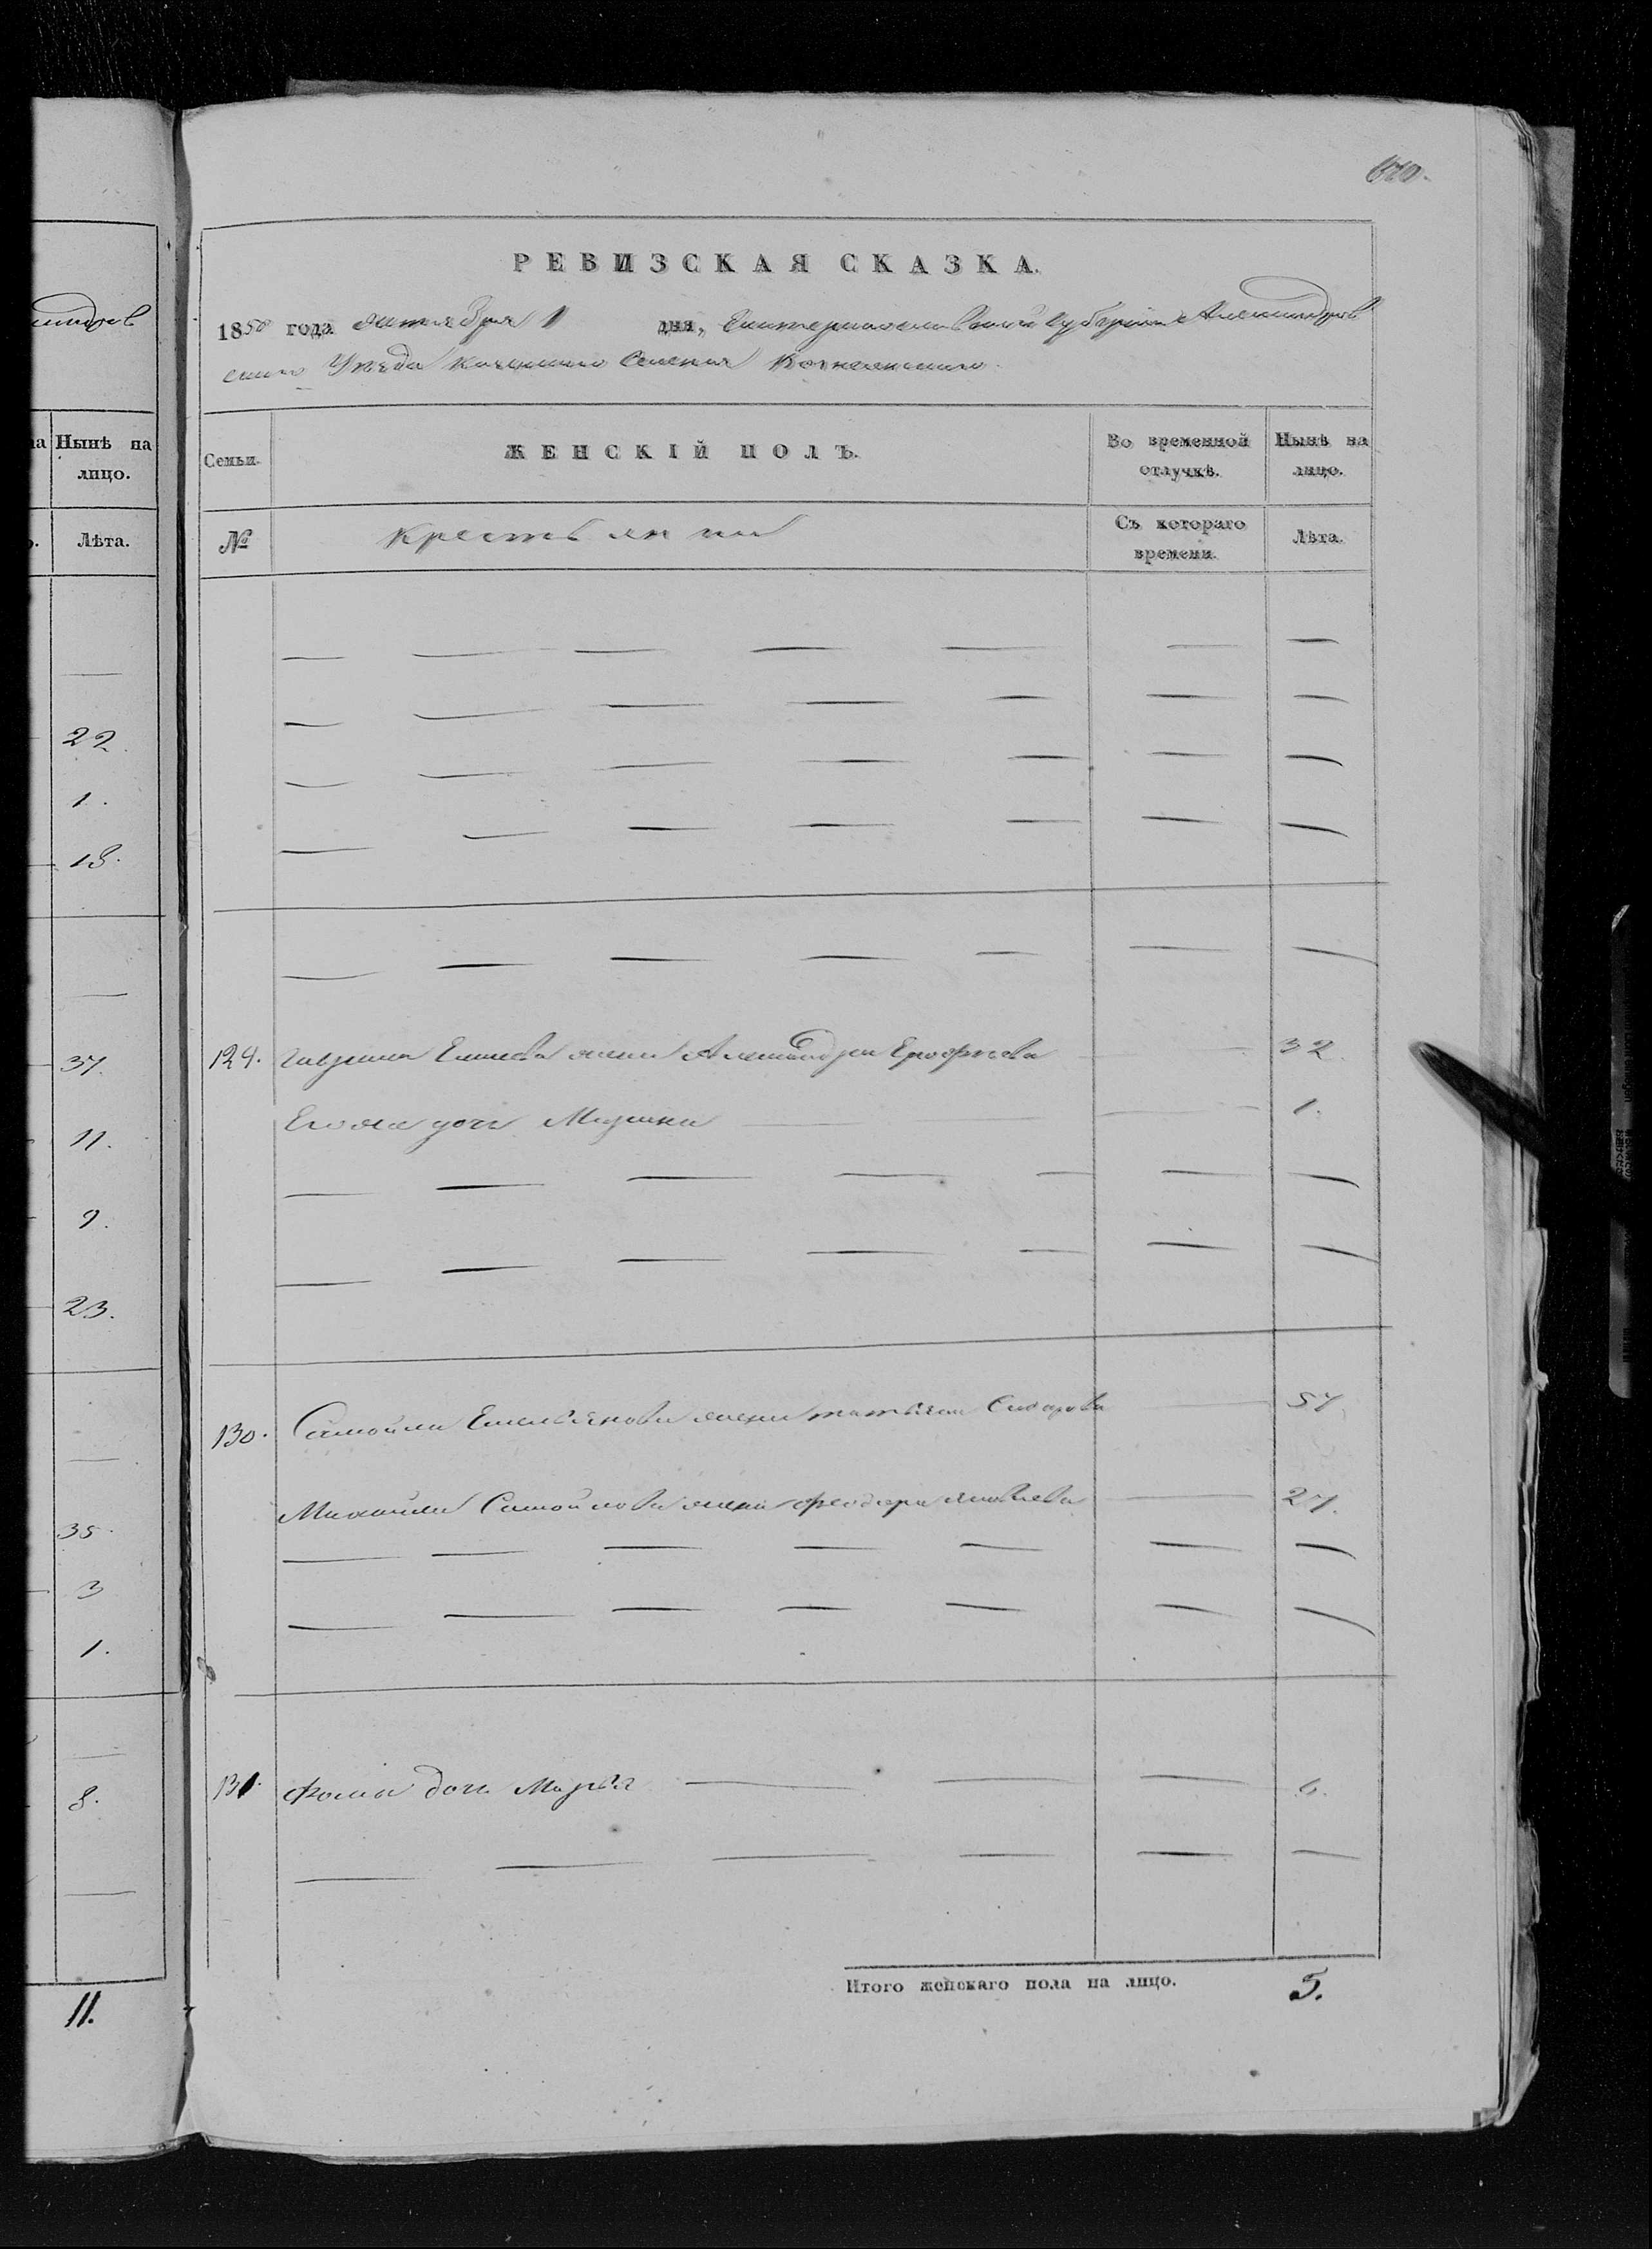 610.
РЕВИЗСКАЯ СКАЗКА.
1850 года октября 1 дня, Екатеринославской Губернии Александров
ского Уезда казенного Селения Вознесенского.
андров
на Нынѣ на лицо.
Лѣта.
22.
1.
18.
37.
11.
9.
23.
35.
3
1.
8.
11.
Семьи.
ЖЕНСКІЙ ПОЛЪ.
Во временной отлучкѣ.
Нынѣ на лицо.
№
крестьянки
Съ котораго времени.
Лѣта.
129. Гаврила жена Александра Ерофеева 32.
Его же дочь Марина 1.
130. Самойла Емельянова жена татьяна Сидорова 57.
Михайлы Самойлова жена феодора яковлева 27.
131. Фомы дочь Марья 6.
Итого женскаго пола на лицо. 5.